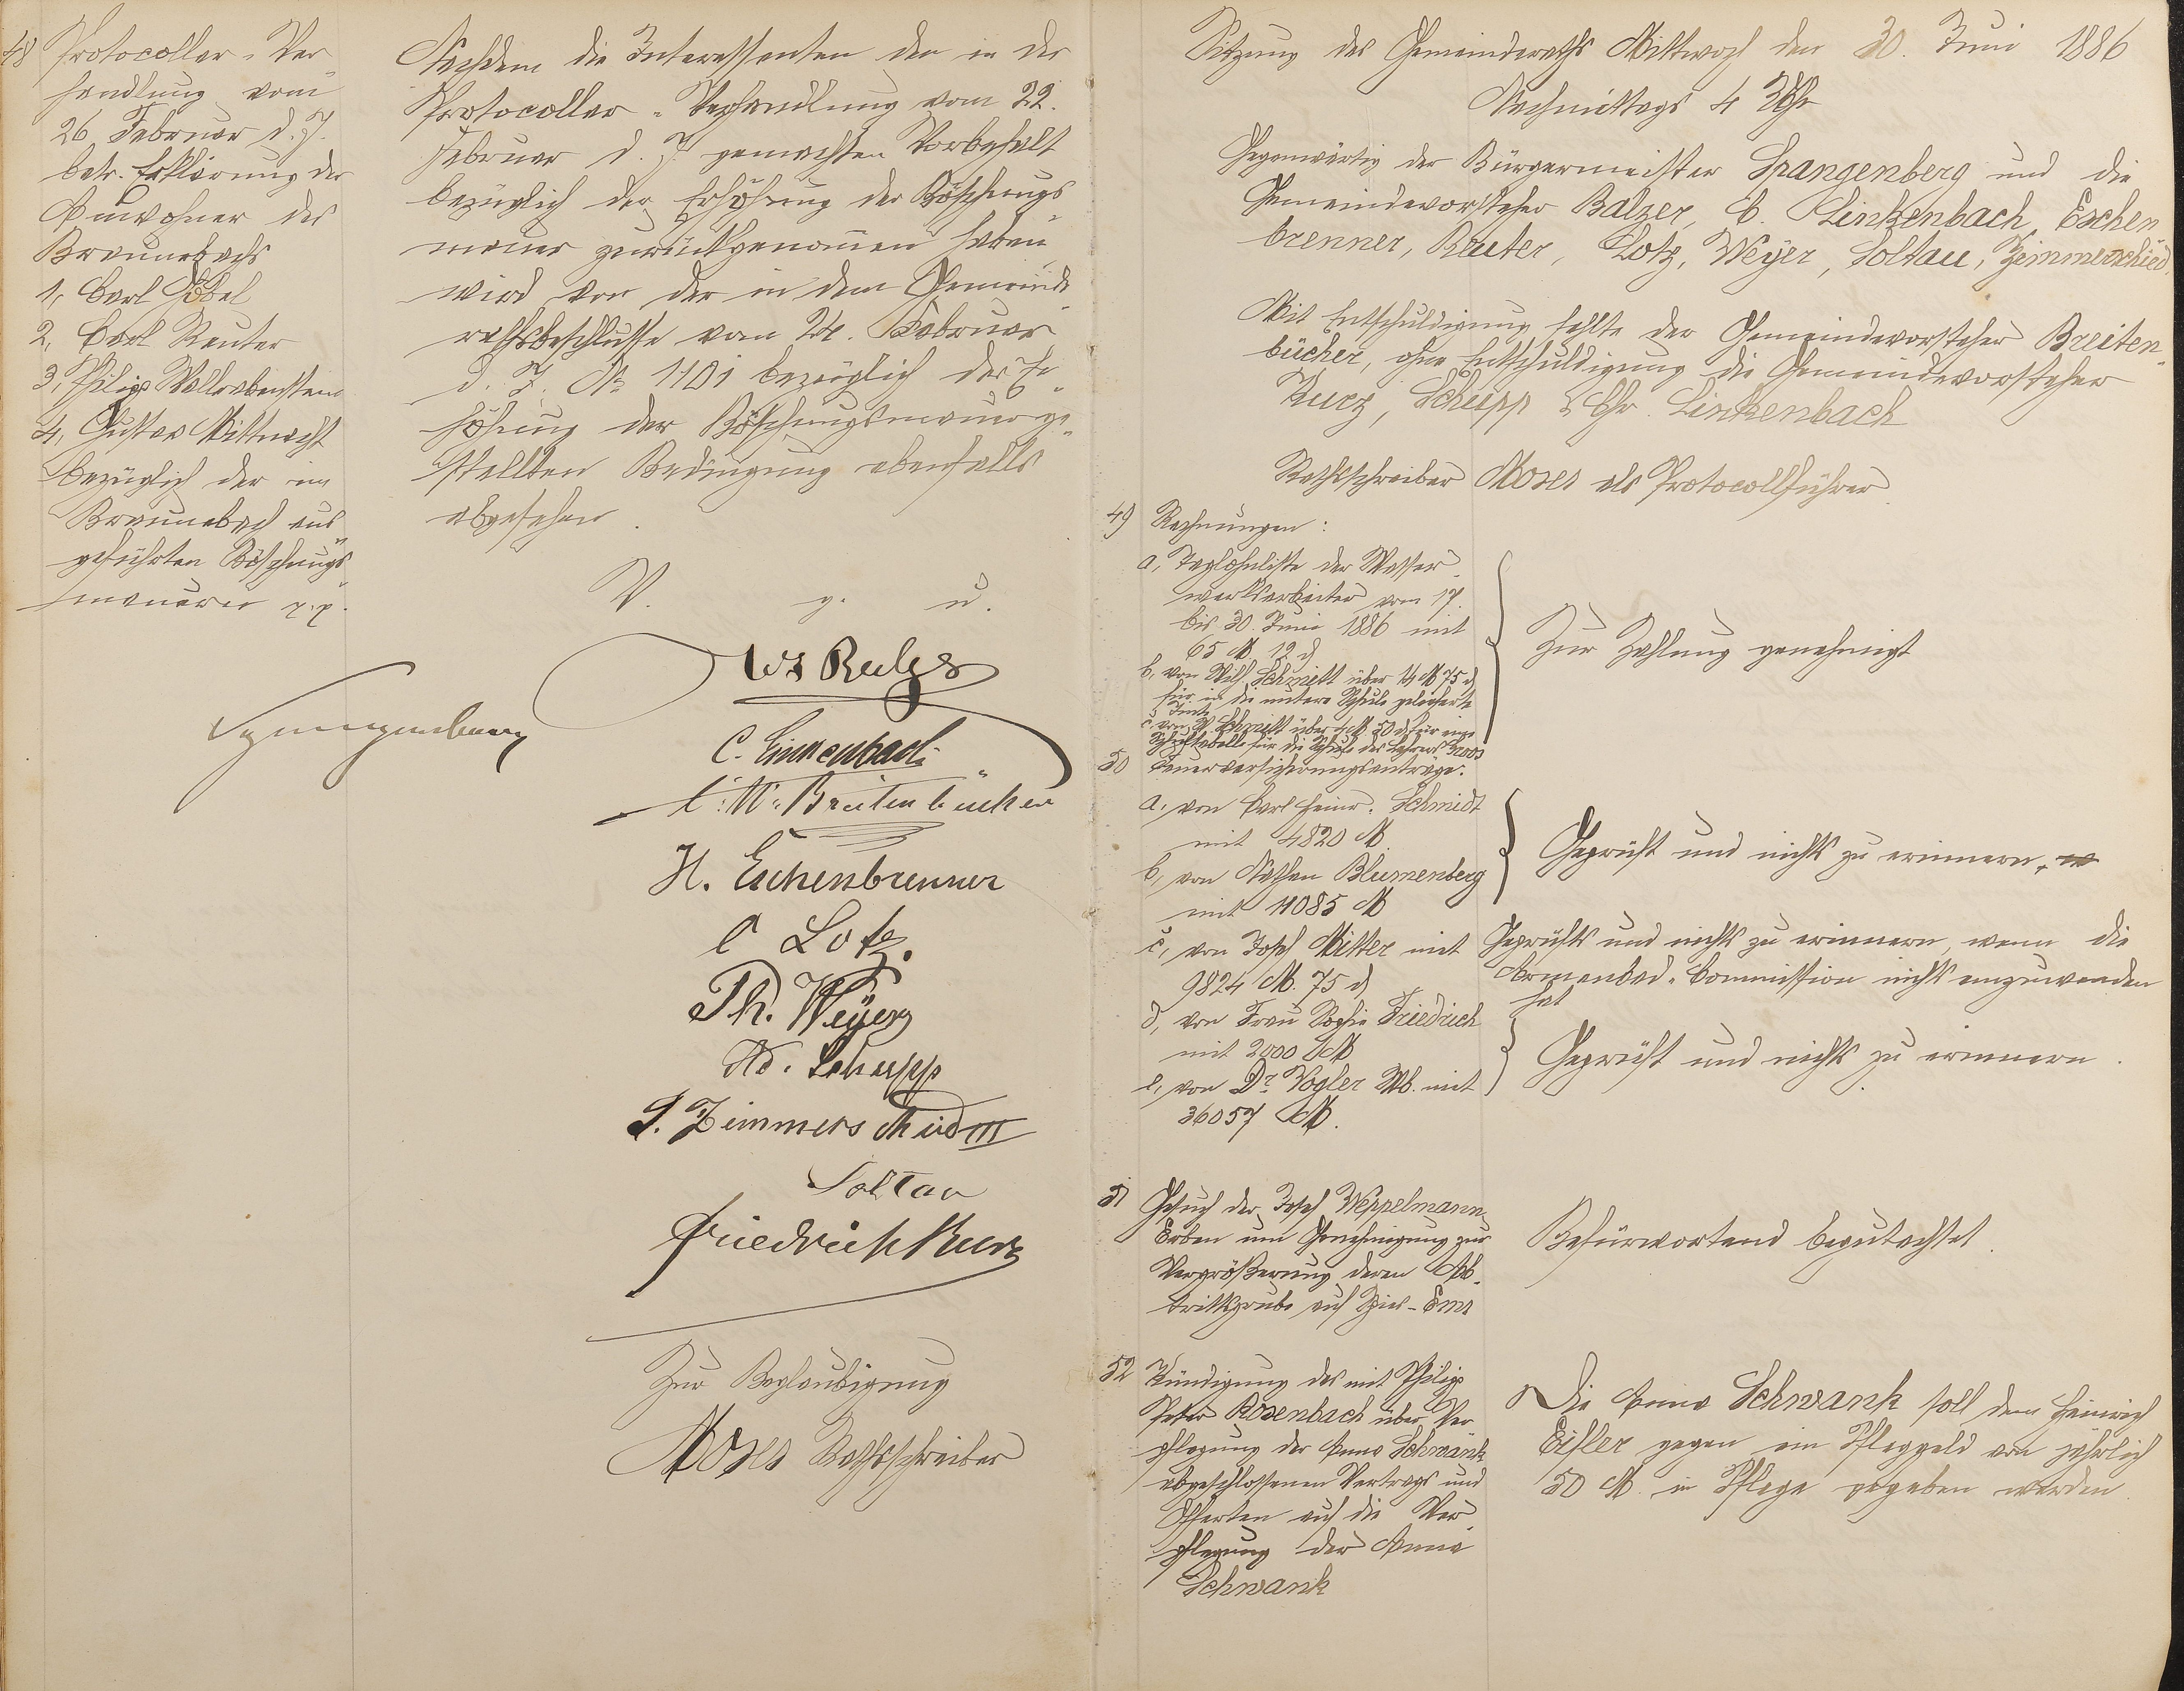 48 Protocollar-Ver-
handlung vom
26 Februar d. J.
betr. Erklärung der
Anwohner des
Braunebachs
1, Carl Göbel
2, Carl Reuter
3, Philipp
4, Gustav Mittnacht
bezüglich der im
Braunebach aus-
geführten Böschungs-
mauern p.p.
Nachdem die Interessenten den in der
Protocollar-Verhandlung vom 22.
Februar d. J. gemachten Vorbehalt
bezüglich der Erhöhung der Böschungs-
mauer zurückgenommen haben,
wird von der in dem Gemeinde-
rathsbeschlusse vom 24. Februar
d. J. No 1101 bezüglich der Er-
höhung der Böschungsmauer ge-
stellten Bedingung ebenfalls
abgesehen.
V. g. u.
Spangenberg
C. Linkenbach
Breitenbücher
H. Eschenbrenner
C Lotz.
Ph. Weyer
Ad. Schupp
P. Zimmerschied III
Soltau
Friedrich Kurz
Zur Beglaubigung
Moses Rathsschreiber
Sitzung des Gemeinderaths Mittwoch den 30. Juni 1886
Nachmittags 4 Uhr
Gegenwärtig der Bürgermeister Spangenberg und die
Gemeindevorsteher Balzer, C. Linkenbach, Eschen-
brenner, Reuter, Lotz, Weyer, Soltau, Zimmerschied.
Mit Entschuldigung fehlte der Gemeindevorsteher Breiten-
bücher, ohne Entschuldigung die Gemeindevorsteher
Kurz, Schupp & Chr. Linkenbach
Rathsschreiber Moses als Protocollführer.
49) Rechnungen:
a, Taglohnliste der Wasser-
werksarbeiter vom 17.
bis 30. Juni 1886 mit
65 M. 12 d
b, von Wilh. Schmitt über 14 M 75 d
für in die untere Schule gelieferte
Tinte
c von W. Schmitt über 4 M. 50 d für eine
für die Schule des Lehrers
Zur Zahlung genehmigt
50 Feuerversicherungsanträge.
a, von Carl Heinr. Schmidt
mit 4820 M.
b, von Nathan Blumenberg
mit 11085 M
Geprüft und nichts zu erinnern.
c, von Josef Mitter mit
9824 M. 75 d
Geprüft und nichts zu erinnern, wenn die
Armenbad-Commission nichts einzuwenden
hat
d, von Frau Sophie Friedrich
mit 2000 M
e, von Dr. Vogler Wb. mit
36057 M.
Geprüft und nichts zu erinnern.
51 Gesuch der Josef Weppelmann
Erben um Genehmigung zur
Vergrößerung deren Ab-
trittsgrube auf Spies-Ems
Befürwortend begutachtet.
52 Kündigung des mit Philipp
Peter Rosenbach über Ver-
pflegung der Anna Schwank
abgeschlossenen Vertrags und
Offerten auf die Ver-
pflegung der Anna
Schwank
Die Anna Schwank soll dem Heinrich
Eisler gegen ein Pfleggeld von jährlich
50 M. in Pflege gegeben werden.